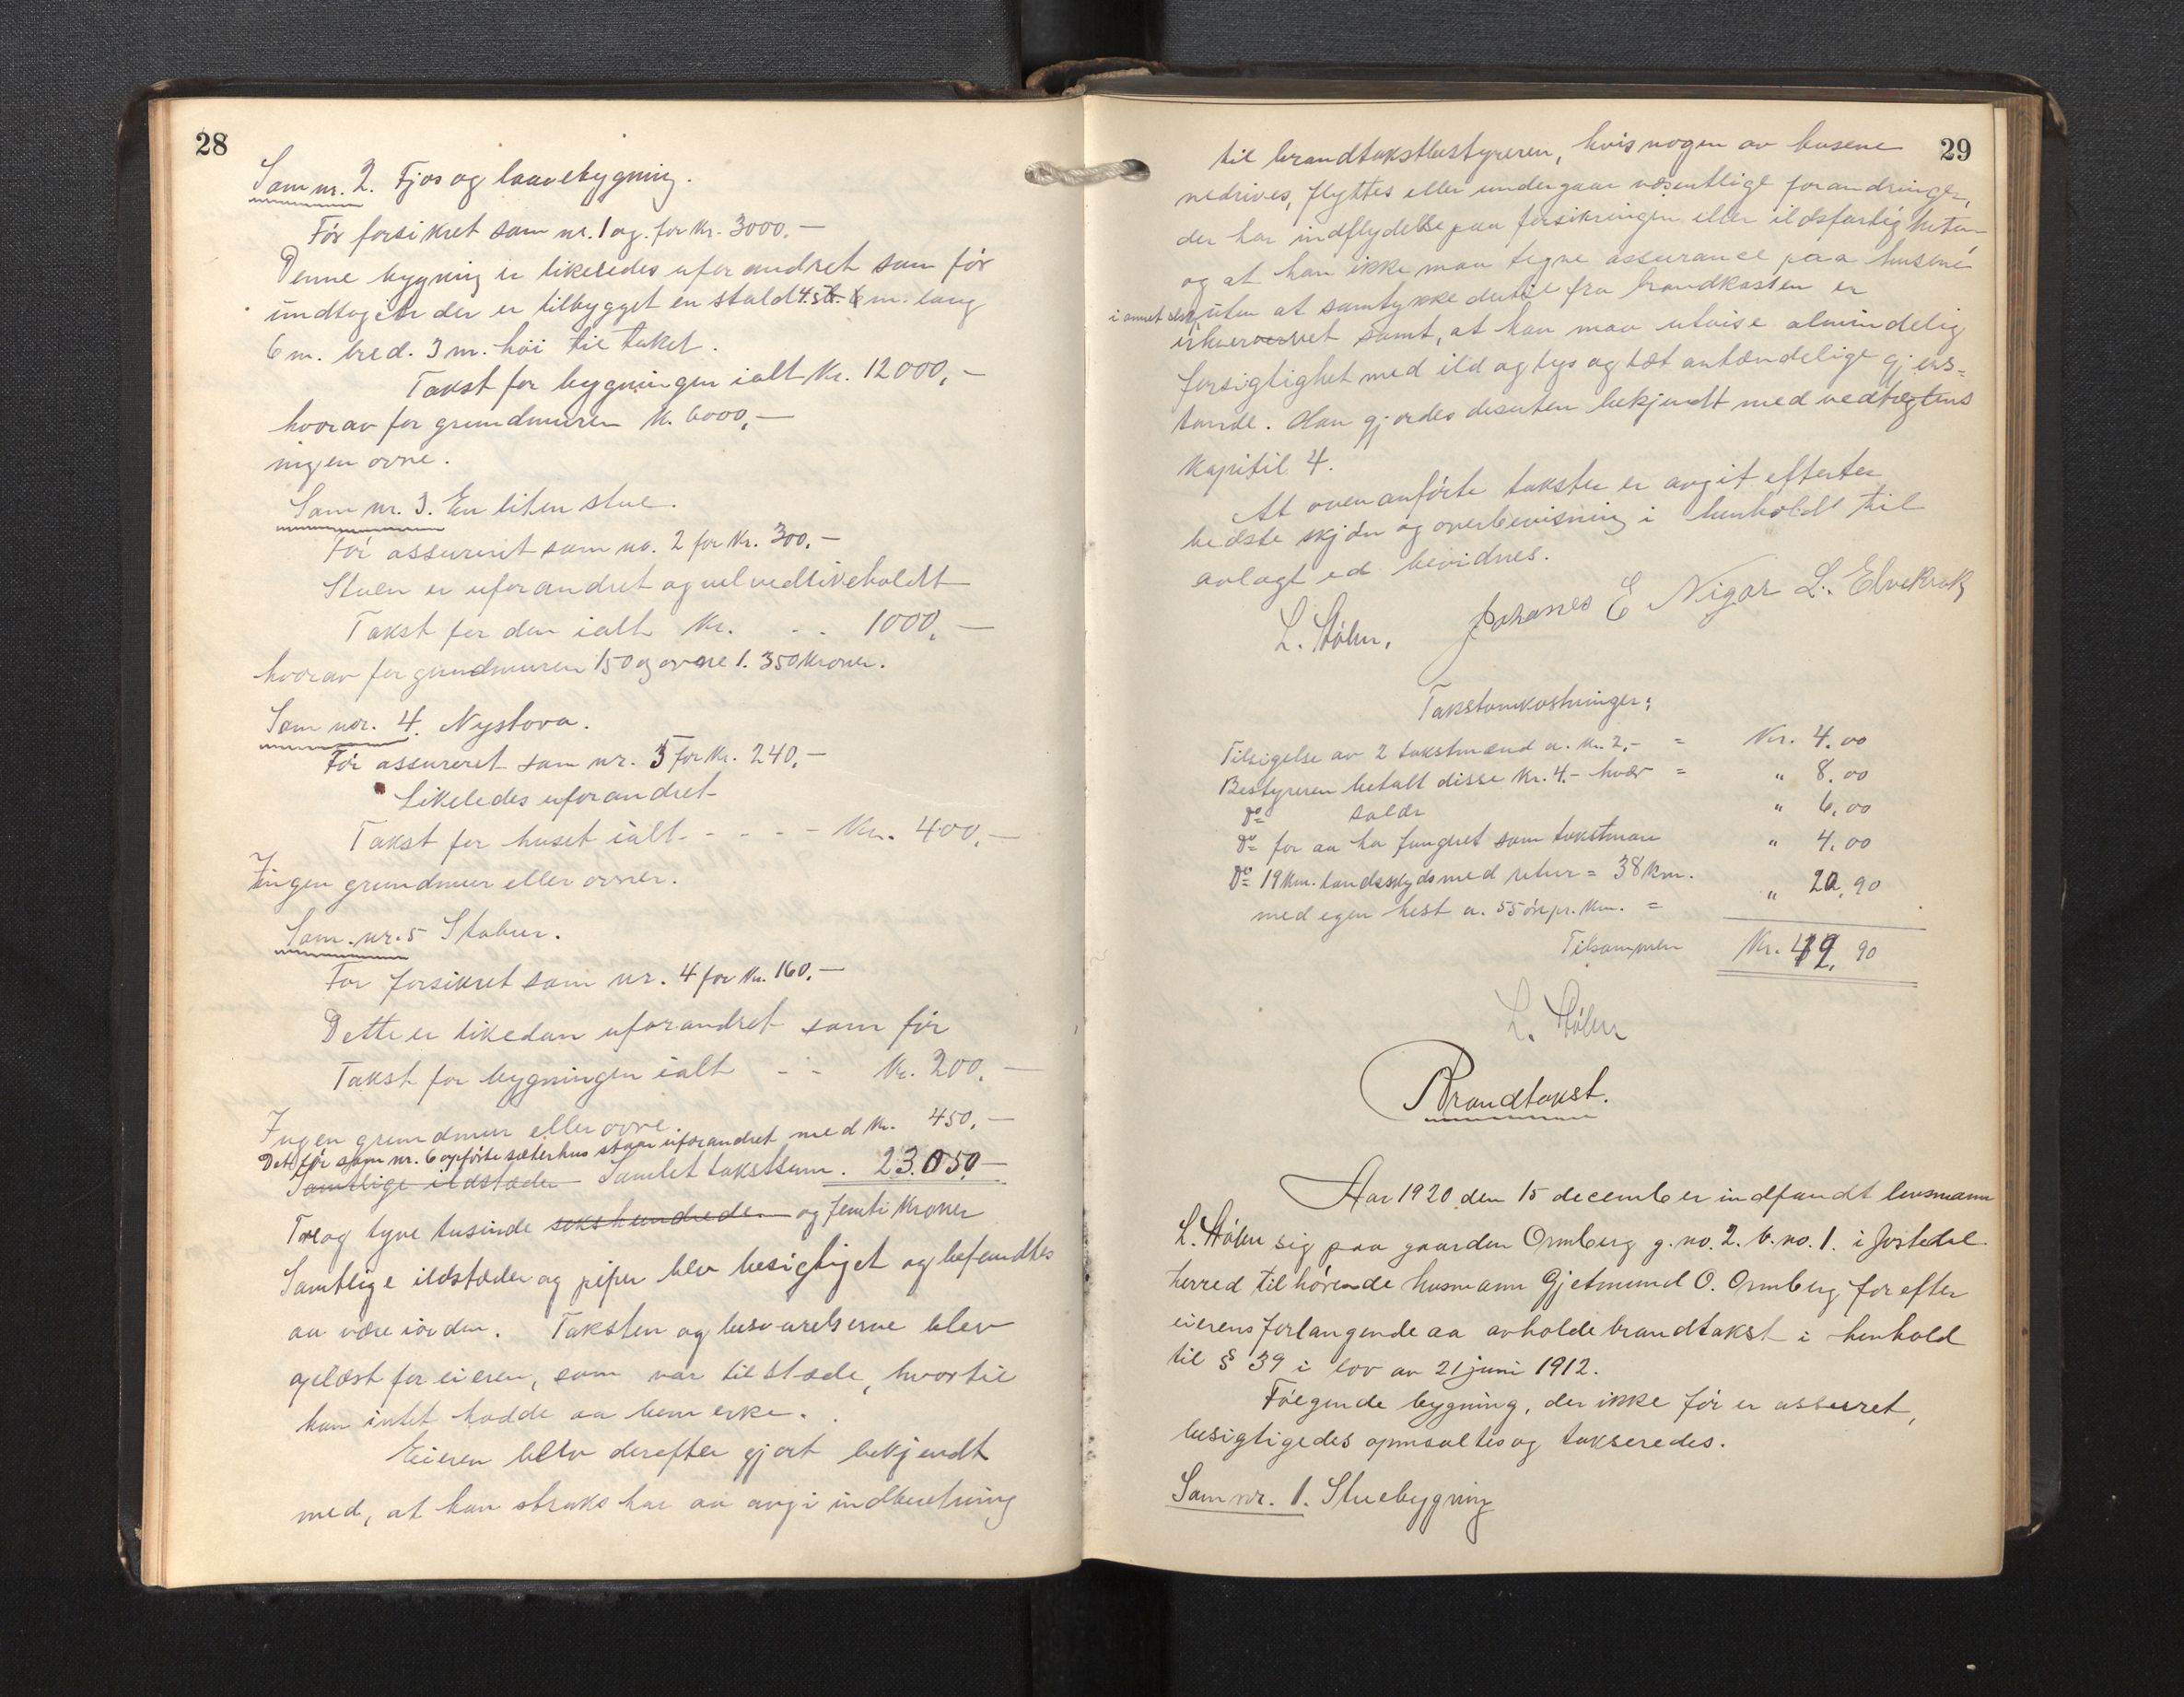 28
Som nr. 2. Fjos og laavebygning.
Før forsikret som nr. 1 og. for Kr. 3000.–
Denne bygning er likeledes uforandret som før
undtagen der er tilbygget en stald 4.5 m. lang
6 m. bred. 3 m. høi til taket.
Takst for bygningen ialt Kr. 12000,–
hvorav for grundmuren Kr. 6000,–
ingen ovne.
Som nr. 3. En liten stue.
Før assureret som no. 2 for Kr. 300,–
Stuen er uforandret og vel vedlikeholdt
Takst for den ialt Kr. - - 1000,–
hvorav for grundmuren 150 og ovne 1. 350 kroner.
Som nr. 4. Nystova.
Før assureret som nr. 3 for Kr. 240,–
Likeledes uforandret
Takst for huset ialt - - - - Kr. 400,–
Ingen grundmur eller ovner.
Som nr. 5 Stabur.
Før forsikret som nr. 4 for Kr. 160,–
Dette er likedan uforandret som før
Takst for bygningen ialt - - Kr. 200,–
Ingen grundmur eller ovne.
Det før som nr. 6 opførte sæterhus staar uforandret med Kr. 450,–
Samtlige ildsteder Samlet takstsum. 23.050–
Tre og tyve tusinde sekshundrede og femti Kroner
Samtlige ildstæder og piper blev besigtiget og befundtes
aa være iorden. Taksten og besvarelserne blev
oplæst for eieren, som var tilstæde, hvortil
han intet hadde aa bemerke.
Eieren blev derefter gjort bekjendt
med, at han straks har aa avgi indberetning
29
til brandtakstbestyreren, hvis nogen av husene
nedrives, flyttes eller undergaar væsentlige forandringer,
der har indflydelse paa forsikringen eller ildsfarligheten
og at han ikke maa tegne assurance paa husene
i annet uten at samtykke dertil fra brandkassen er
erhvervet samt, at han maa utvise almindelig
forsigtighet med ild og lys og let antændelige gjens=
tande. Han gjordes desuten bekjendt med vedtægtens
Kapitil 4.
At ovenanførte takster er avgit efter
bedste skjøn og overbevisning i henholdt til
avlagt ed bevidnes.
L. Stølen. Johannes E Nigar L. Elvekrok
Takstomkostninger:
Tilsigelse av 2 takstmænd a. Kr. 2,– = Kr. 4.00
Bestyreren betalt disse Kr. 4.– hver = " 8.00
Do salær " 6.00
Do for aa ha fungeret som takstman " 4.00
Do 19 km. landskyds med retur = 38 km.
med egen hest a. 55 øre pr. km. = " 20.90
Tilsammen Kr. 42.90
L. Stølen
Brandtakst.
Aar 1920 den 15 december indfandt lensmann
L. Stølen sig paa gaarden Ormberg g.no. 2. b.no. 1. i Jostedal
herred tilhørende husmann Gjetmund O. Ormberg for efter
eierens forlangende aa avholde brandtakst i henhold
til § 39 i lov av 21 juni 1912.
Følgende bygning, der ikke før er assurert,
besigtigedes opmaaltes og takseredes.
Som nr. 1. Stuebygning